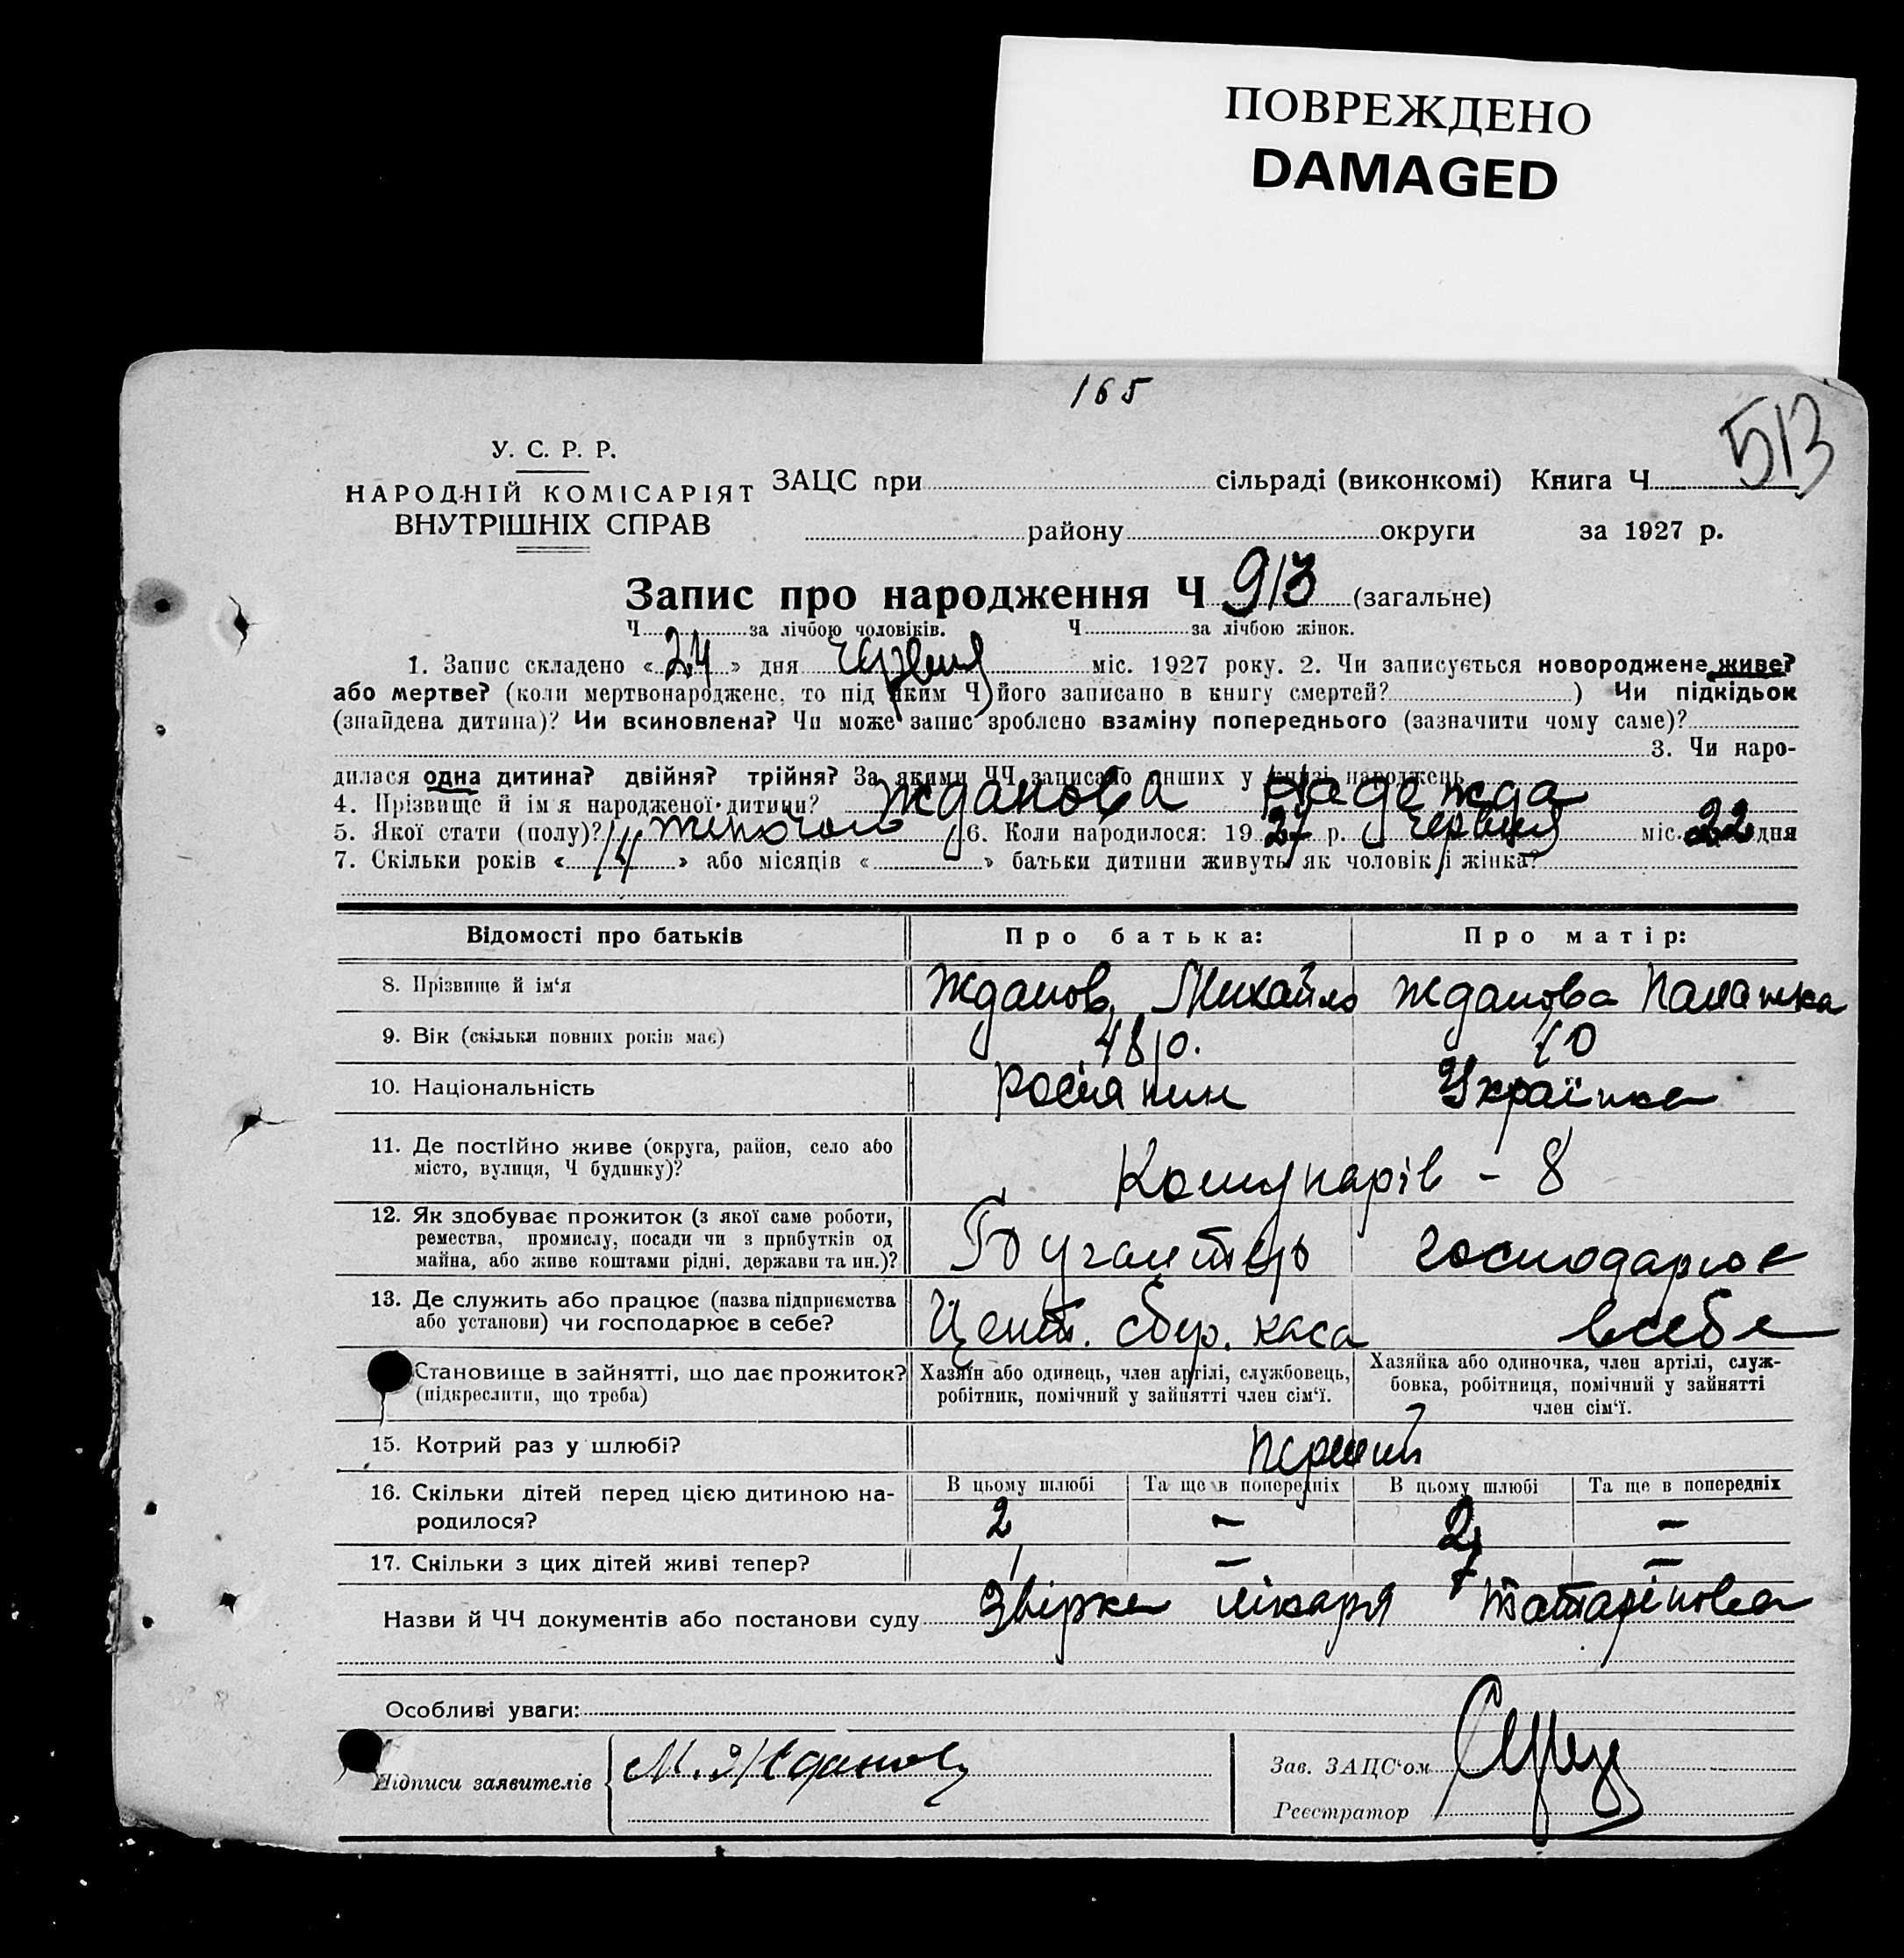 ПОВРЕЖДЕНО
DAMAGED
165
513
У. С. Р. Р.
НАРОДНІЙ КОМІСАРІЯТ
ВНУТРІШНІХ СПРАВ
ЗАЦС при сільраді (виконкомі) Книга Ч
району округи за 1927 р.
Запис про народження Ч 913 (загальне)
Ч за лічбою чоловіків. Ч за лічбою жінок.
1. Запис складено «24» дня червня міс. 1927 року. 2. Чи записується новороджене живе?
або мертве? (коли мертвонароджене, то під яким Ч його записано в книгу смертей? ) Чи підкідьок
(знайдена дитина)? Чи всиновлена? Чи може запис зроблено взаміну попереднього (зазначити чому саме)?
3. Чи наро-
дилася одна дитина? двійня? трійня? За якими ЧЧ записано инших у книзі народжень
4. Прізвище й ім'я народженої дитини? Жданова Надежда
5. Якої стати (полу)? жіночої 6. Коли народилося: 1927 р. червня міс. 22 дня
7. Скільки років «14» або місяців « » батьки дитини живуть як чоловік і жінка?
Відомості про батьків Про батька: Про матір:
8. Прізвище й ім'я Жданов Михайло Жданова Палажка
9. Вік (скільки повних років має) 48 р. 40
10. Національність росіянин Українка
11. Де постійно живе (округа, район, село або
місто, вулиця, Ч будинку)? Комунарів - 8
12. Як здобуває прожиток (з якої саме роботи,
ремества, промислу, посади чи з прибутків од
майна, або живе коштами рідні, держави та ин.)? Бугалтер господарює
13. Де служить або працює (назва підприємства
або установи) чи господарює в себе? Цент. сбер. каса в себе
Становище в зайнятті, що дає прожиток?
(підкреслити, що треба)
Хазяїн або одинець, член артілі, службовець,
робітник, помічний у зайнятті член сім'ї.
Хазяйка або одиночка, член артілі, служ-
бовка, робітниця, помічний у зайнятті
член сім'ї.
15. Котрий раз у шлюбі? перший
16. Скільки дітей перед цією дитиною на-
родилося?
В цьому шлюбі Та ще в попередніх В цьому шлюбі Та ще в попередніх
2 - 2 -
17. Скільки з цих дітей живі тепер? 1 - 1 -
Назви й ЧЧ документів або постанови суду лікаря Татарінова
Особливі уваги:
Підписи заявителів М. Жданов
Зав. ЗАЦС'ом
Реєстратор